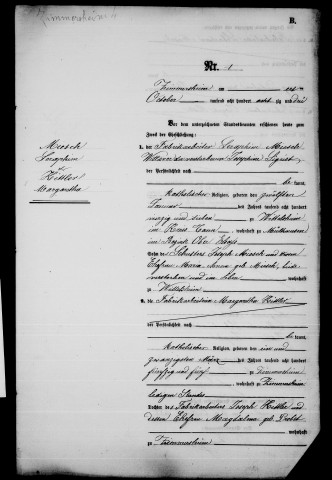 Zimmersheim
B.
Nr. 1
Zimmersheim am
October tausend acht hundert acht zig und drei
Vor dem unterzeichneten Standesbeamten erschienen heute zum
Zweck der Eheschließung:
1. der Fabrikarbeiter Seraphim Mesch
Wittwer der verstorbenen Josephine
der Persönlichkeit nach
be kannt,
katholischer Religion, geboren den zwölften
Januar des Jahres tausend acht hundert
und sieben zu Wittelsheim
im Kreis Tann, wohnhaft zu Mülhausen
im Bezirk Ober Elsaß
Sohn des Schusters Joseph Mesch und dessen
Ehefrau Maria Anna geb. Mesch, beide
verstorben und im leben wohnhaft
zu Wittelsheim
2. die Fabrikarbeiterin Margaretha Hettler
der Persönlichkeit nach
be kannt,
katholischer Religion, geboren den ein und
zwanzigsten März des Jahres tausend acht hundert
fünfzig und fünf zu Zimmersheim
wohnhaft zu Zimmersheim
ledigen Standes
Tochter des Fabrikarbeiters Joseph Hettler und
dessen Ehefrau Magdalena geb.
wohnhaft
zu Zimmersheim
Mesch
Seraphim
&
Hettler
Margaretha